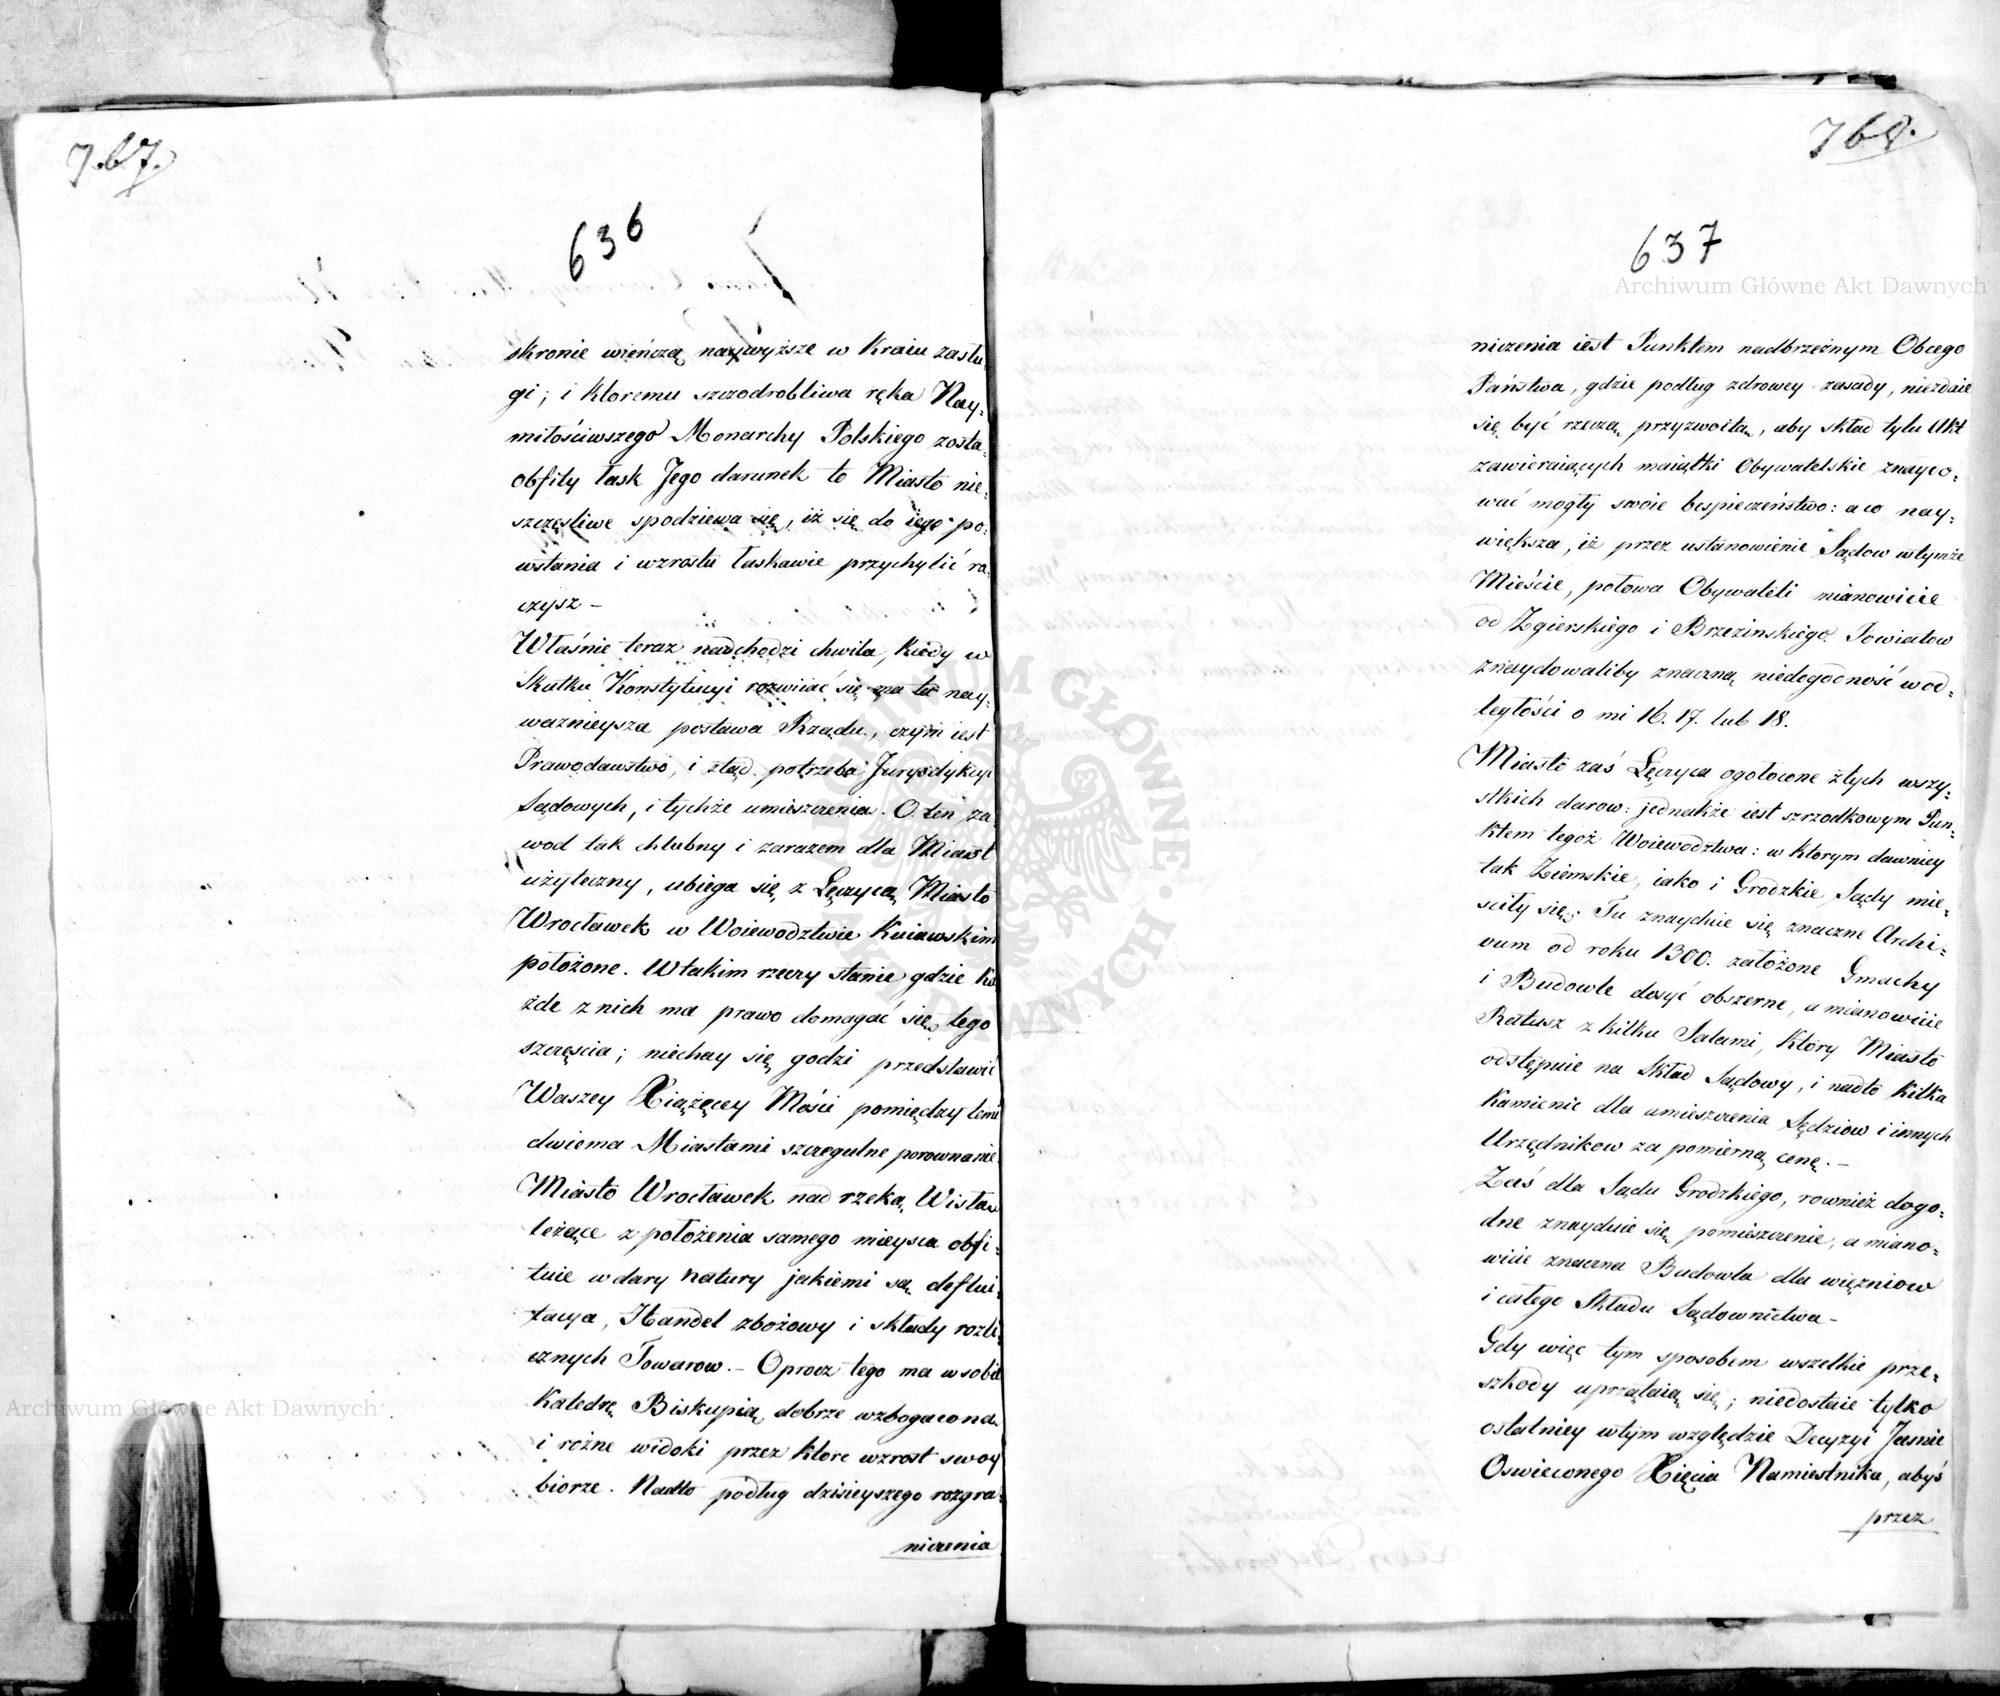 767.
636
skronie wieńczą naywyższe w Kraiu zasłu-
gi; i ktoremu szczodrobliwa ręka Nay-
miłościwszego Monarchy Polskiego zosta-
obfity łask Jego darunek to Miasto nie-
szczęsliwe spodziewa się, iż się do iego po-
wstania i wzrostu łaskawie przychylić ra-
czysz –
Właśnie teraz nadchodzi chwila, kiedy w
Skutku Konstytucyi rozwiiać się ma ta nay-
ważnieysza postawa Rządu, czym iest
Prawodawstwo, i ztąd potrzeba Jurysdykcyi
Sądowych, i tychże umieszczenia. O ten za-
wod tak chlubny i zarazem dla Miast
użyteczny, ubiega się z Łęczycą Miasto
Wrocławek w Woiewodztwie Kuiawskim
położone. W takim rzeczy stanie gdzie ka-
żde z nich ma prawo domagać się tego
szczęscia; niechay się godzi przedstawić
Waszey Xiążęcey Mości pomiędzy temi
dwiema Miastami szczegulne porownanie.
Miasto Wrocławek nad rzeką Wisłą
leżące z położenia samego mieysca obfi-
tuie w dary natury jakiemi są deflui-
tacya, Handel zbożowy i składy rozli-
cznych Towarow. – Oprocz tego ma w sobie
Katedrę Biskupią dobrze wzbogaconą
i rożne widoki przez ktore wzrost swoy
bierze. Nadto podług dzisieyszego rozgra-
niczenia
768.
637
Archiwum Główne Akt Dawnych
niczenia iest Punktem nadbrzeżnym Obcego
Państwa, gdzie podług zdrowey zasady, niezdaie
się być rzeczą przyzwoitą, aby skład tylu Akt
zawieraiących maiątki Obywatelskie znaydo-
wać mogły swoie bespieczeństwo: a co nay-
większa, iż przez ustanowienie Sądow w tymże
Mieście, połowa Obywateli mianowicie
od Zgierskiego i Brzezinskiego Powiatow
znaydowaliby znaczną niedogodność w od-
ległości o mi 16. 17. lub 18.
Miasto zaś Łęczyca ogołocone z tych wszy-
stkich darow: jednakże iest szrzodkowym Pun-
ktem tegoż Woiewodztwa: w ktorym dawniey
tak Ziemskie, iako i Grodzkie Sądy mie-
sciły się. Tu znayduie się znaczne Archi-
vum od roku 1300. założone Gmachy
i Budowle dosyć obszerne, a mianowicie
Ratusz z kilku Salami, ktory Miasto
odstępuie na Skład Sądowy, i nadto kilka
Kamienic dla umieszczenia Sędziow i innych
Urzędnikow za pomierną cenę. –
Zaś dla Sądu Grodzkiego, rownież dogo-
dne znayduie się pomieszczenie, a miano-
wicie znaczna Budowla dla więzniow
i całego Składu Sądownictwa –
Gdy więc tym sposobem wszelkie prze-
szkody uprzątaią się; niedostaie tylko
ostatniey w tym względzie Decyzyi Jaśnie
Oswieconego Xięcia Namiestnika, abyś
przez
Archiwum Główne Akt Dawnych
ARCHIWUM GŁÓWNE AKT DAWNYCH